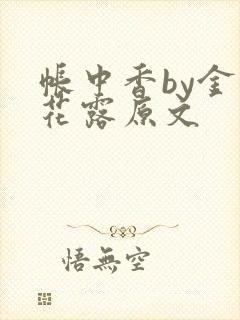 帳中香by金
花露原文
悟無空